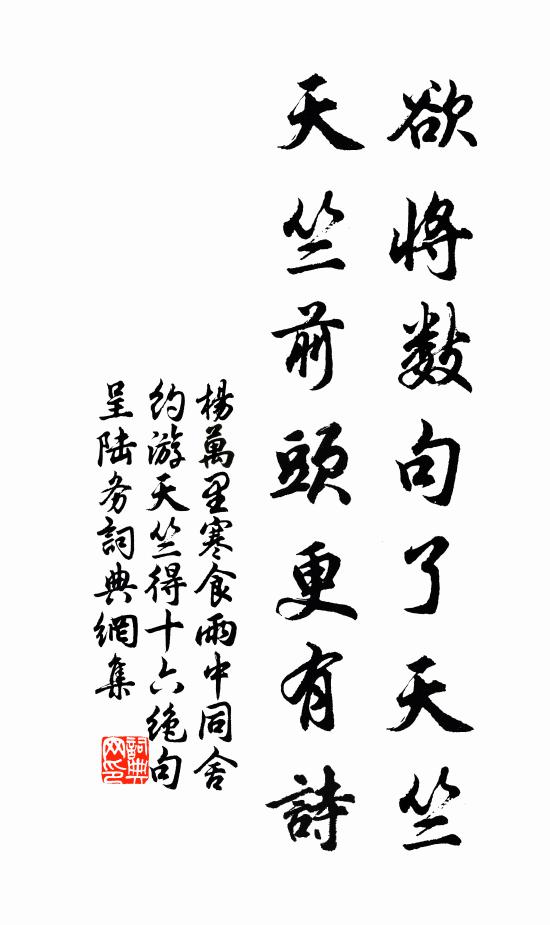 欲将数句了天竺
天竺前頭更有詩
楊萬里寒食雨中同舍
约游天竺得十六绝句
呈陆务詞典網集
詞典网印